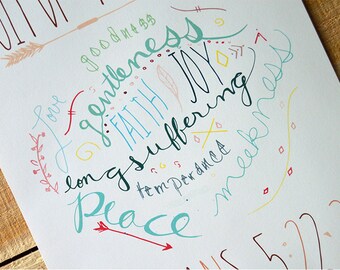 goodness
gentleness
Love
FAITH
JOY
longsuffering
temperance
meekness
Peace
5:22